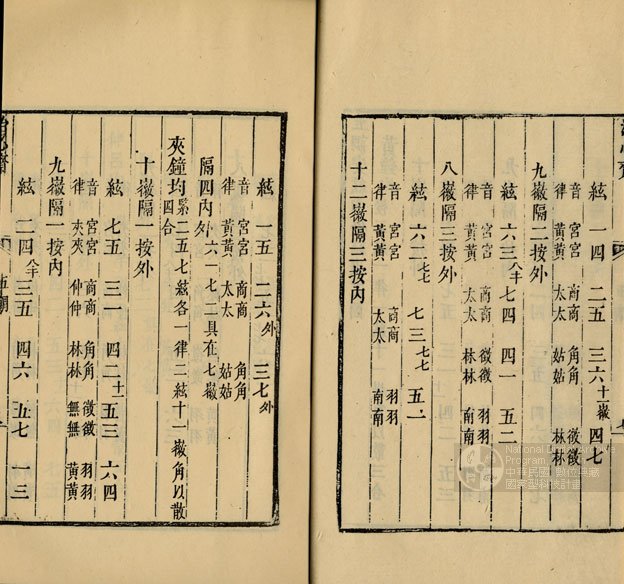 絃 一四 二五 三六十一徽 四七
音 宮宮 商商 角角 徵徵
律 黃黃 太太 姑姑 林林
九徽隔二按外
絃 六三八半 七四 四一 五二
音 宮宮 商商 徵徵 羽羽
律 黃黃 太太 林林 南南
八徽隔三按外
絃 六二七七 七三七七 五一
音 宮宮 商商 羽羽
律 黃黃 太太 南南
十二徽隔三按內
絃 一五 二六外 三七外
音 宮宮 商商 角角
律 黃黃 太太 姑姑
隔四內外 六一 七二具在七徽
夾鐘均緊四合二五七絃各一律二絃十一徽角以散
十徽隔一按外
絃 七五 三一 四二十一 五三 六四
音 宮宮 商商 角角 徵徵 羽羽
律 夾夾 仲仲 林林 無無 黃黃
九徽隔一按內
絃 二四八半 三五 四六 五七 一三
五調
National Digital Archives Program
中華民國 數位典藏
國家型科技計畫